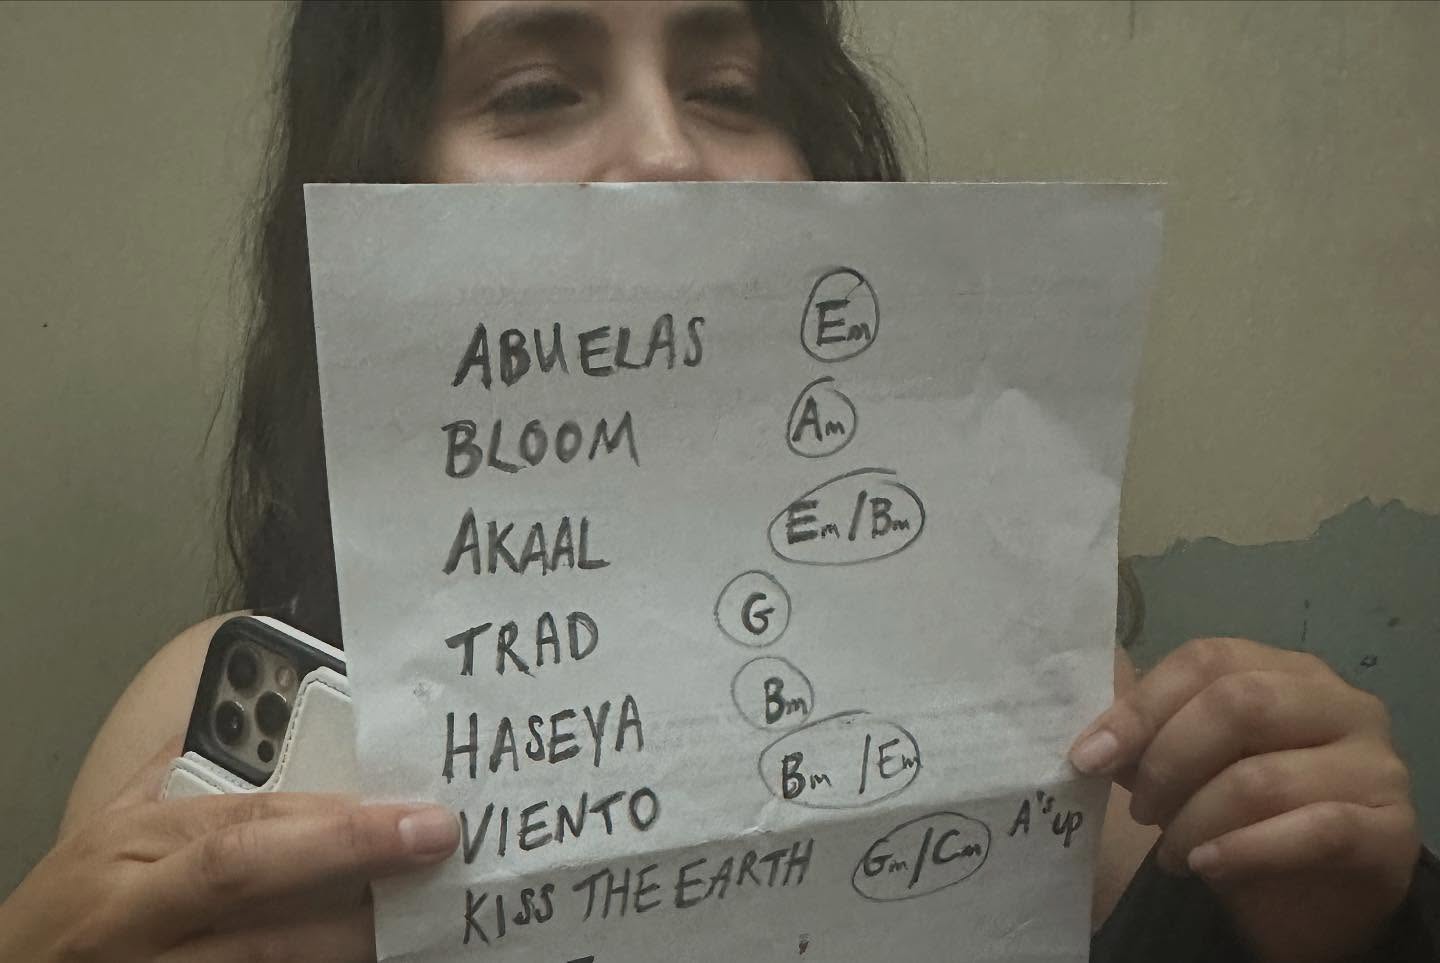 ABUELAS Em
BLOOM Am
AKAAL Em/Bm
TRAD G
HASEYA Bm
VIENTO Bm/Em
KISS THE EARTH Gm/Cm A's up